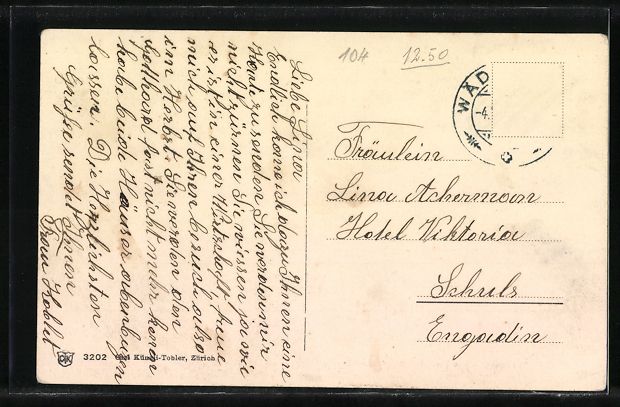 Liebe Lina
Endlich kome ich dazu Ihnen eine
Karte zu senden Sie werden mir
nicht zürnen Sie wissen ja wie
es ist in einer Wirtschaft freue
mich auf Ihren Besuch also
im Herbst. Sie werden den
Gotthard fast nicht mehr kenen
habe beide Häuser
lassen. Die Herzlichsten
Grüße sendet Ihnen
Frau
104 12.50
WÄD
Fräulein
Lina Achermann
Hotel Viktoria
Schuls
Engadin
3202 Carl Künzli-Tobler, Zürich